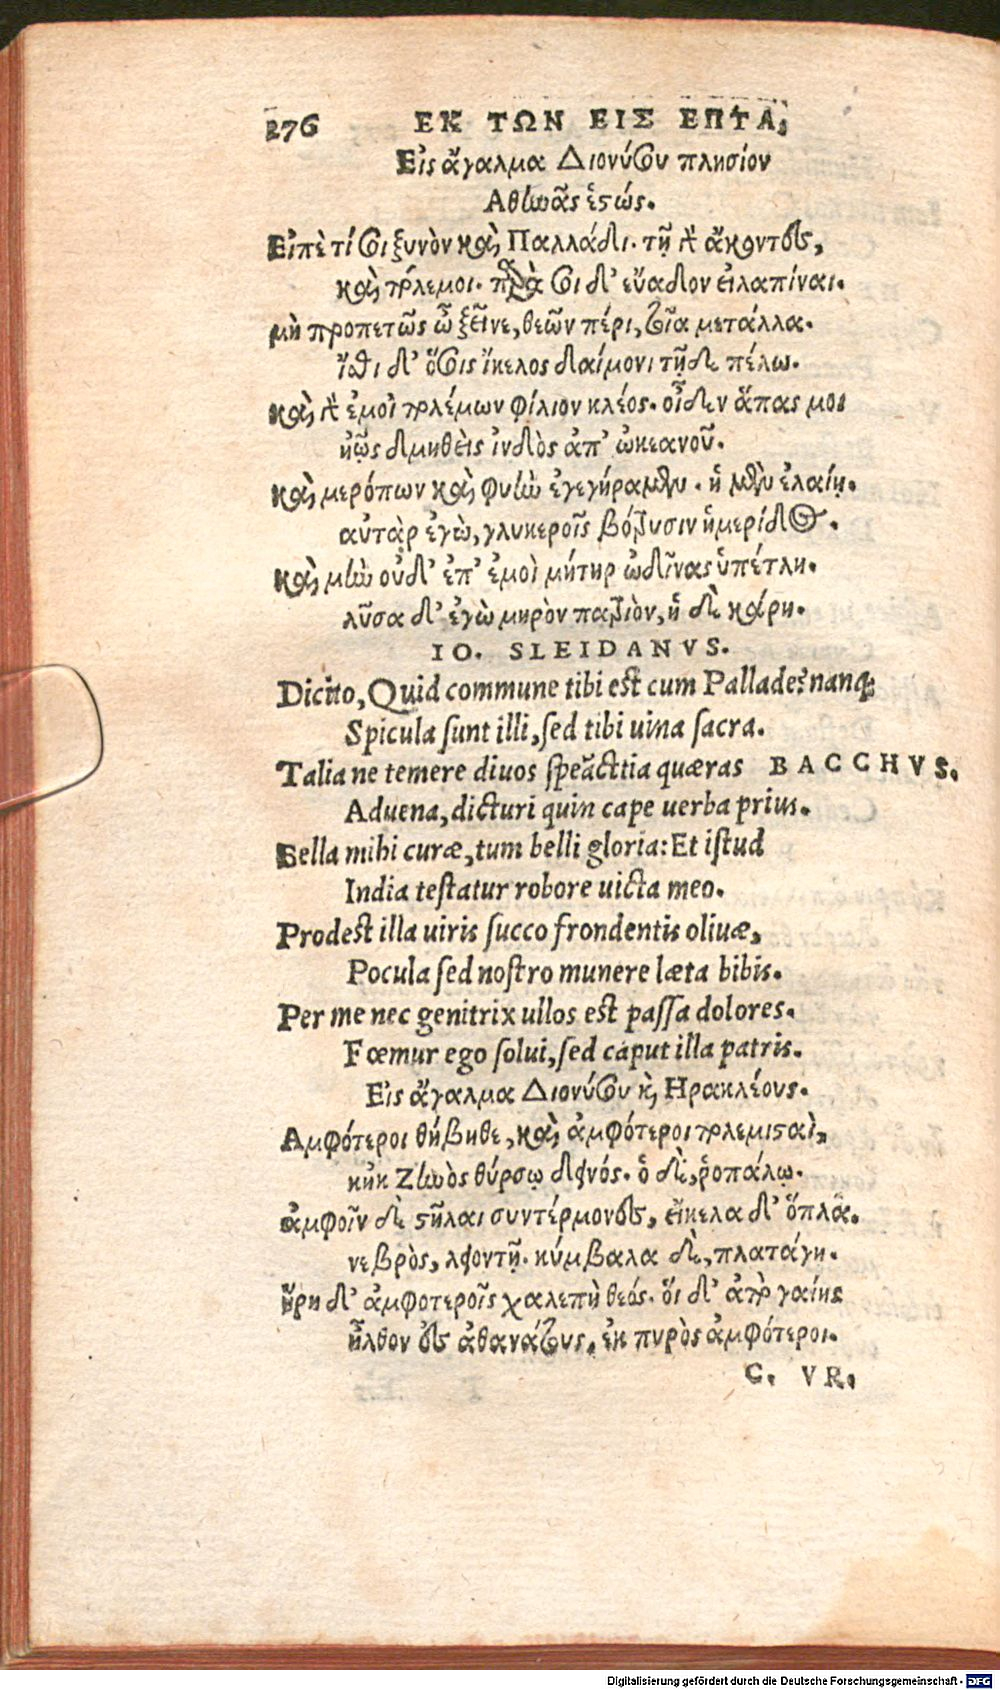 276 ΕΚ ΤΩΝ ΕΙΣ ΕΠΤΑ,
Εἰς ἄγαλμα Διονύσου πλησίον
Αθηνᾶς ἑστώς.
Εἰπὲ τί σοι ξυνὸν καὶ Παλλάδι. τῇ γὰρ ἄκοντες,
καὶ πόλεμοι. παρὰ σοι δ' εὔαδον εἰλαπίναι.
μὴ προπετῶς ὦ ξεῖνε, θεῶν πέρι, τοῖα μετάλλα.
ἴσθι δ' ὅσοις ἴκελος δαίμονι τῇδε πέλω.
καὶ γὰρ ἐμοὶ πολέμων φίλιον κλέος. οἶδεν ἅπας μοι
ηῷος δμηθεὶς ἰνδὸς ἀπ' ὠκεανοῦ.
καὶ μερόπων καὶ φυλὴν ἐγεγήραμεν. ἡ μὲν ἐλαίῃ.
αὐτὰρ ἐγὼ, γλυκεροῖς βότρυσιν ἡμερίδος.
καὶ μὴν οὐδ' ἐπ' ἐμοὶ μήτηρ ὠδῖνας ὑπέτλη.
λῦσα δ' ἐγὼ μηρὸν πατρὸς, ἡ δὲ κάρη.
IO. SLEIDANVS.
Dicito, Quid commune tibi est cum Pallade? nanq;
Spicula sunt illi, sed tibi uina sacra.
Talia ne temere diuos spectātia quæras BACCHVS.
Aduena, dicturi quin cape uerba prius.
Bella mihi curæ, tum belli gloria: Et istud
India testatur robore uicta meo.
Prodest illa uiris succo frondentis oliuæ,
Pocula sed nostro munere læta bibis.
Per me nec genitrix ullos est passa dolores.
Fœmur ego solui, sed caput illa patris.
Εἰς ἄγαλμα Διονύσου κὶ Ηρακλέους.
Αμφότεροι θήβηθε, καὶ ἀμφότεροι πολεμισταὶ,
κἠκ Ζηνὸς θύρσῳ δεινός. ὁ δὲ, ῥοπάλῳ.
ἀμφοῖν δὲ στῆλαι συντέρμονες, εἴκελα δ' ὅπλα.
νεβρὸς, λεοντῇ. κύμβαλα δὲ, πλατάγη.
ἥρη δ' ἀμφοτεροῖς χαλεπὴ θεός. ὅι δ' ἀπὸ γαίης
ἦλθον ἐς ἀθανάτους, ἐκ πυρὸς ἀμφότεροι.
C. VR.
Digitalisierung gefördert durch die Deutsche Forschungsgemeinschaft - DFG